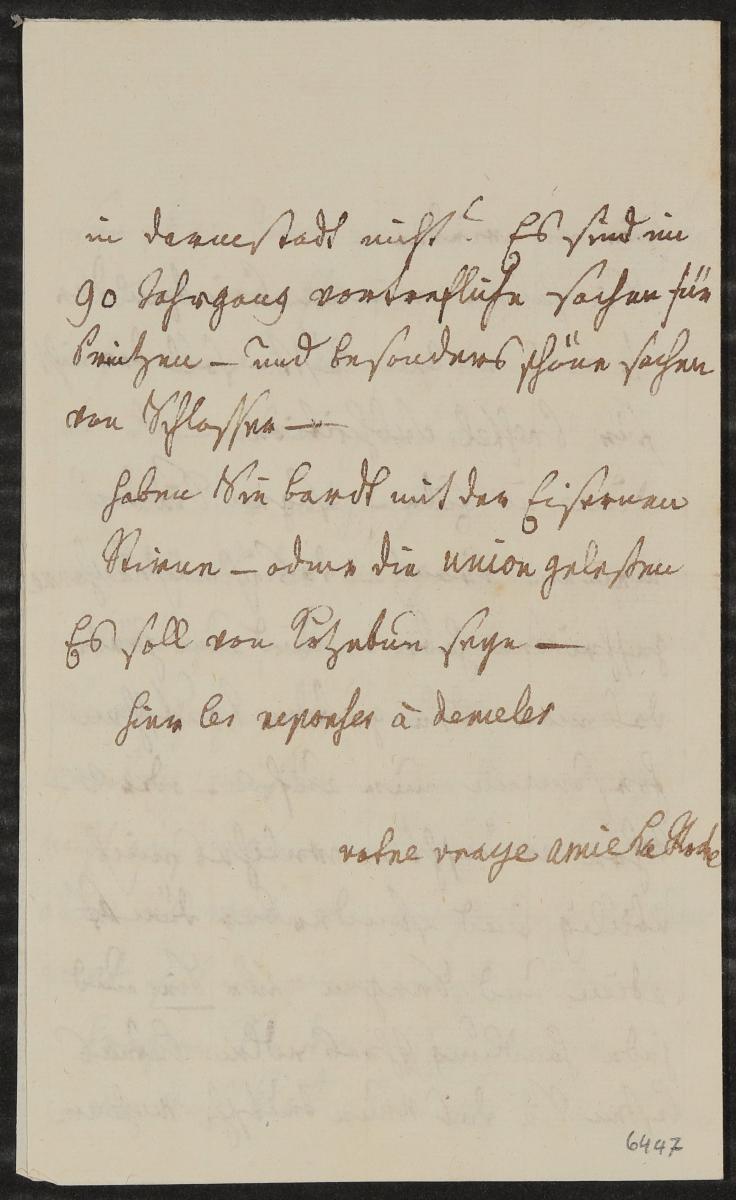 in darmstadt nicht? Es sind im
90 Jahrgang vortrefliche sachen für
Printzen – und besonders schöne sachen
von Schlosser –
haben Sie bardt mit der Eisernen
Stirne – oder die union geleßen
Es soll von Kotzebue seyn –
hier les reponses à
votre vraye amie La Roche
6447